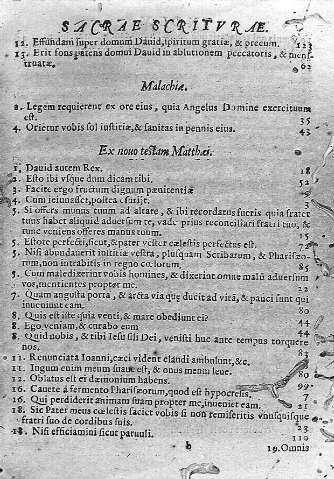 SACRAE SCRITVRAE.
12. Effundam super domum Dauid, spiritum gratiæ, & precum. 123
13. Erit fons patens domui Dauid in ablutionem peccatoris, & mens-
truatæ. 62
Malachiæ.
2. Legem requirent ex ore eius, quia Angelus Domine exercituum
est. 35
4. Orietur vobis sol iustitiæ, & sanitas in pennis eius. 43
Ex nouo testam Matthei.
1. Dauid autem Rex. 18
2. Esto ibi vsque dum dicam tibi. 52
3. Facite ergo fructum dignum pænitentiæ
4. Cum ieiunasset, postea esurijt.
5. Si offers munus tuum ad altare, & ibi recordatus fueris quia frater
tuus habet aliquid aduersum te, vade prius reconciliari fratri tuo, &
tunc veniens offeres munus tuum.
5. Estote perfecti, sicut, & pater vester cælestis perfectus est. 72
5. Nisi abundauerit iustitia vestra, plusquam Scribarum, & Pharisæo-
rum, non intrabitis in regno cœlorum. 85
5. Cum maledixerint vobis homines, & dixerint omne malũ aduersum
vos, mentientes propter me. 22
7. Quam angusta porta, & arcta via quæ ducit ad vitã, & pauci sunt qui
inueniunt eam. 80
8. Quis est iste quia venti, & mare obediunt ei? 44
8. Ego veniam, & curabo eum 44
8. Quid nobis, & tibi Iesu fili Dei, venisti huc ante tempus torquere
nos.
11. Renunciata Ioanni, cæci vident claudi ambulunt, &c.
11. Iugum enim meum suaue est, & onus meum leue.
12. Oblatus est ei dæmonium habens.
16. Cauete à fermento Phariseorum, quod est hypocresis.
16. Qui perdiderit animam suam propter me, inueniet eam. 21
18. Sic Pater meus cœlestis faciet vobis si non remiseritis vnusquisque
fratri suo de cordibus suis. 23
18. Nisi efficiamini sicut paruuli. 110
b 19. Omnis